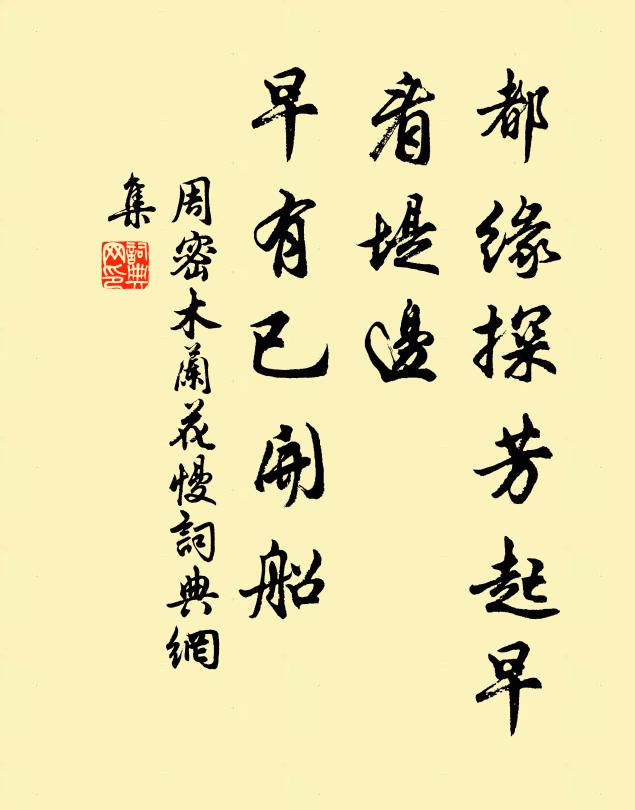 都緣探芳起早
看堤邊
早有已開船
周密木蘭花慢詞典網
集
詞典
网印